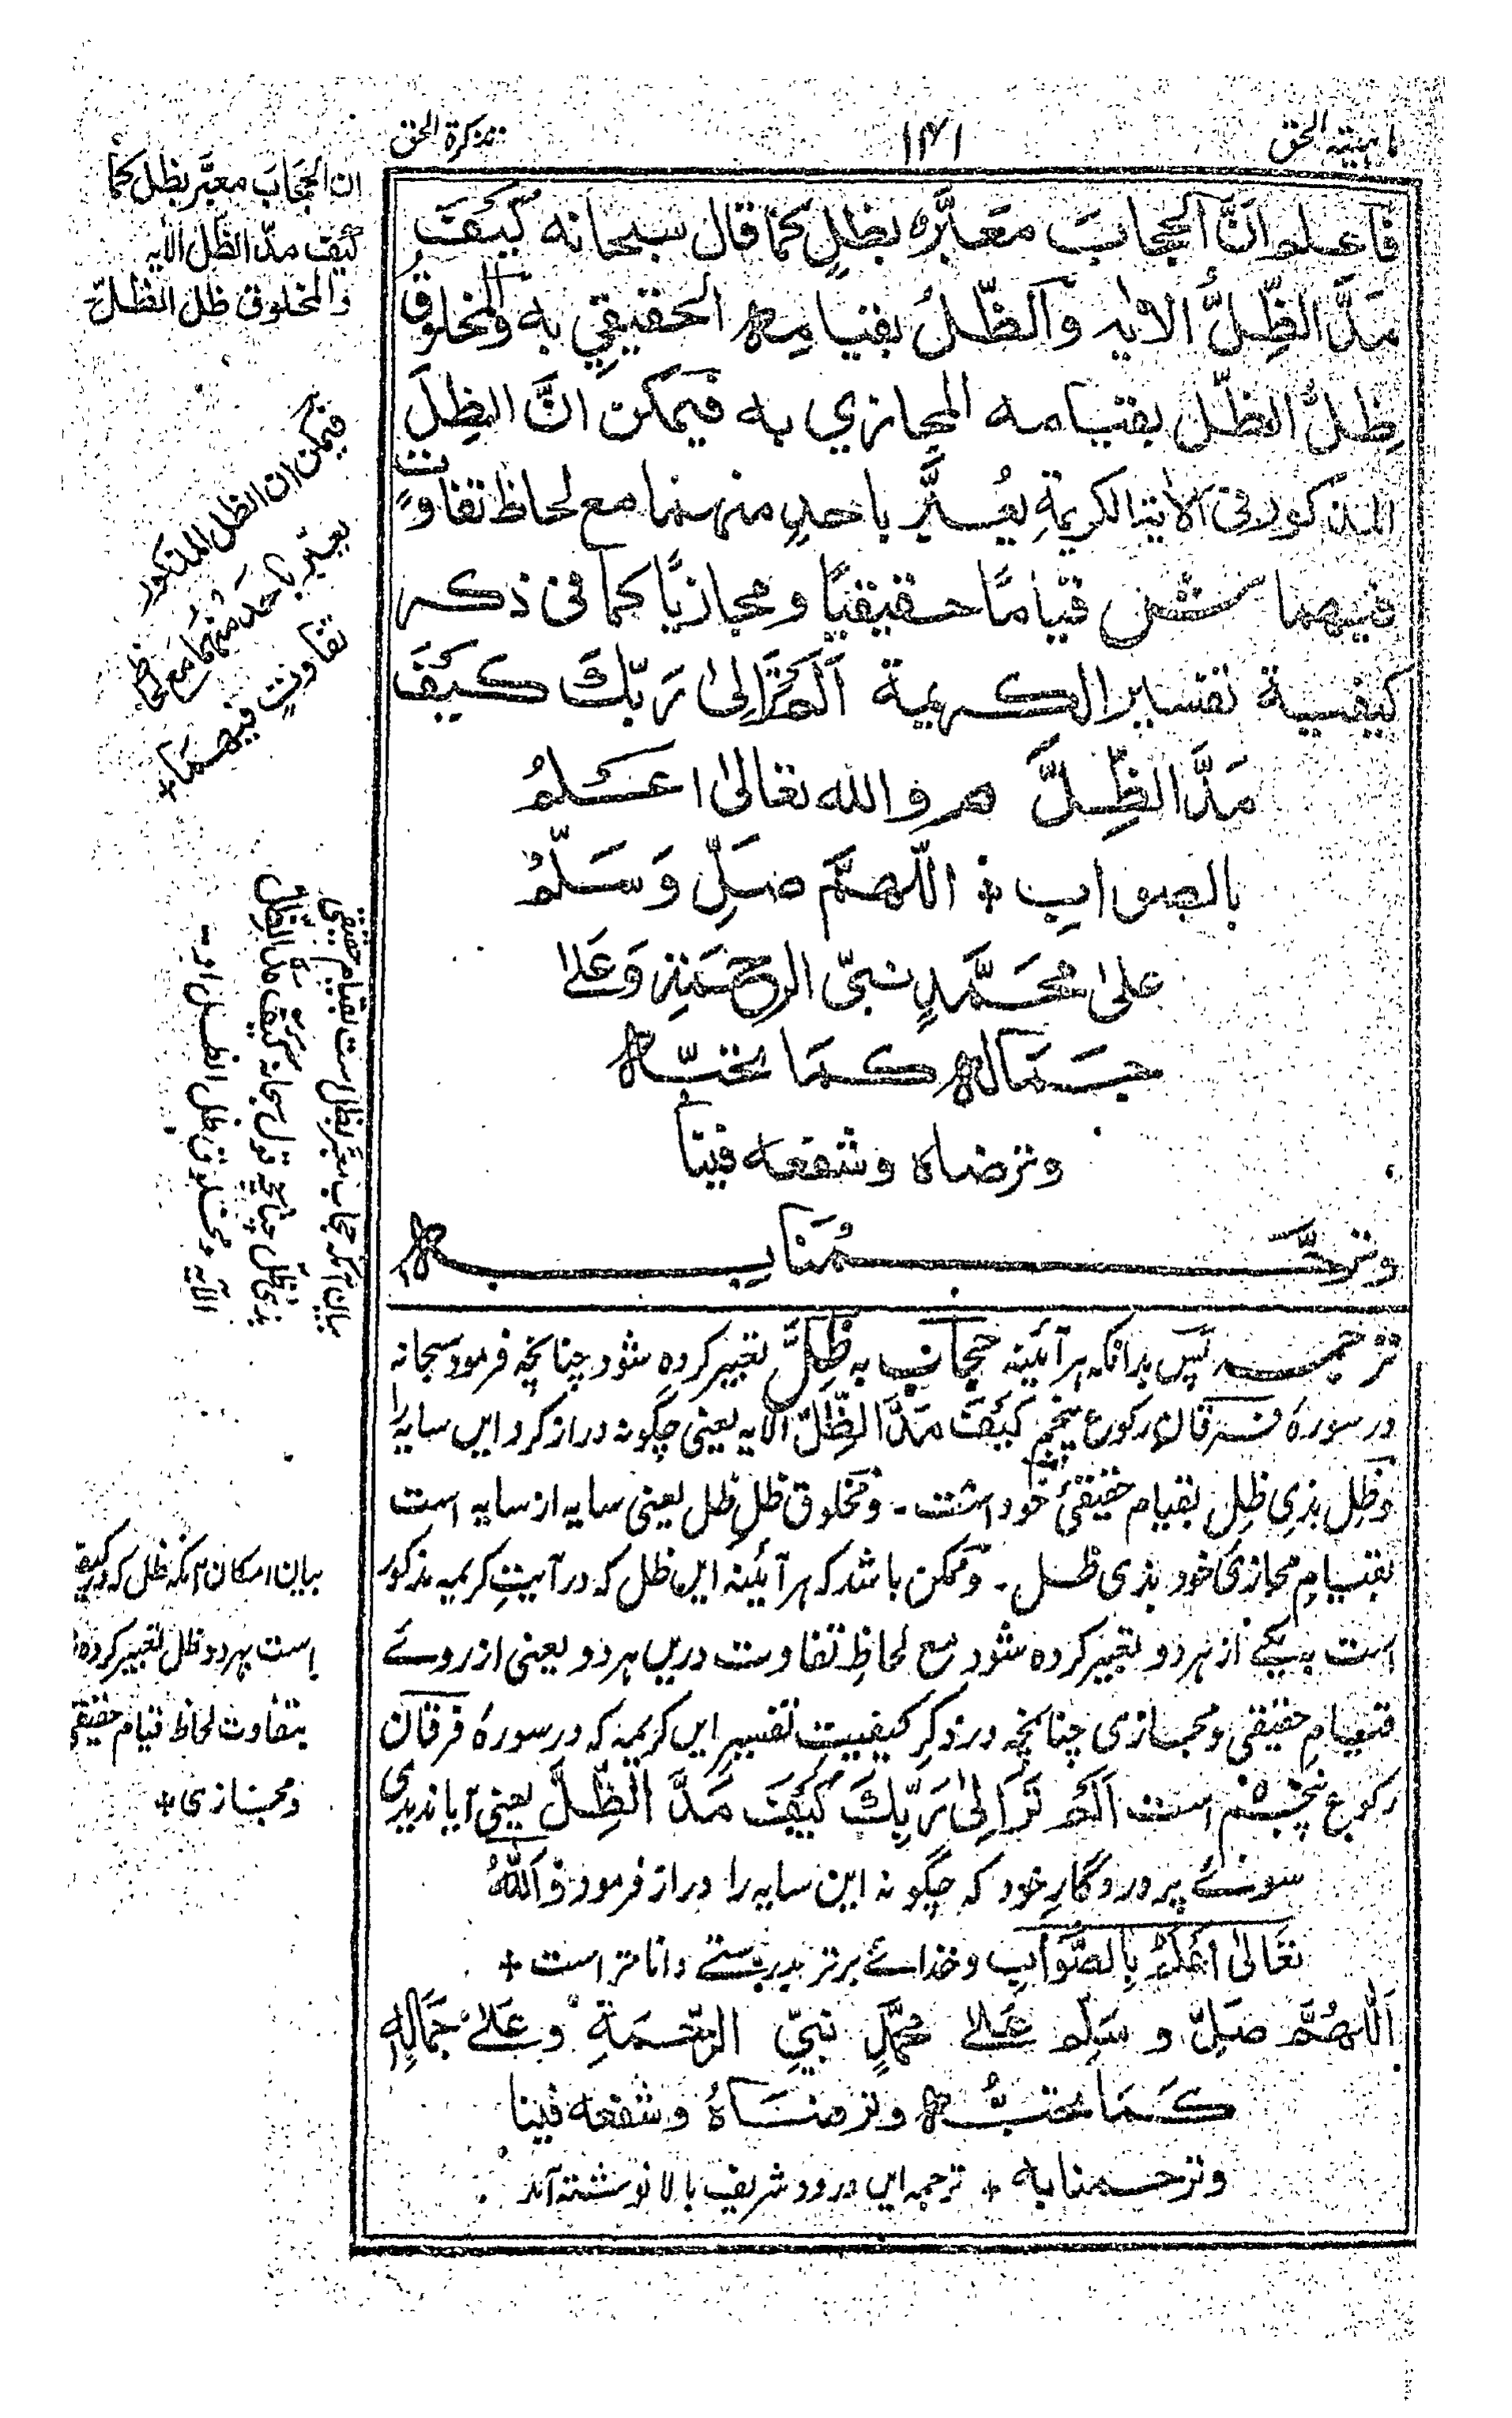 ماہیتہ الحق
۱۴۱
تذکرة الحق
فَاعلموا انَّ الحجابَ معَبَّرٌ بظلٍ كمَا قال سبحانه كَيفَ
مَدَّ الظِّلَّ الاٰيه وَالظّلُ بقيامِه الحقيقيِ به والمخلوقُ
ظِلُّ الظلّ بقيامه المجازي به فيمكن انَّ الظِلَّ
المذكور فى الاٰية الكريمةِ يُعبَّر باحدٍ منهما مع لحاظ تفاوتٍ
فيهما قيامًا حقيقيًا ومجازيًا كما فى ذكر
كيفية تفسير الكريمة اَلَم تَرَ اِلىٰ رَبّكَ كَيفَ
مَدَّ الظِّلَّ هر والله تعالىٰ اعلمُ
بالصواب ÷ اللّٰهمَّ صَلِّ وَسَلّمْ
علىٰ محَمَّدٍ نبىّ الرحمَةِ وَعَلىٰ
جَمَالِه كَمَا تحبّه
وترضاه وشفعه فينا
وترحَّمنَا بِه
ترجمہ پس بدانکہ ہر آئینہ حجاب بہ ظِلَّ تعبیر کردہ شود چنانچہ فرمود سبحانہ
در سورۂ فرقان رکوع پنجم كَيْفَ مَدَّ الظِّلَّ الایہ یعنی چگونہ دراز کرد ایں سایہ را
وظِل بذی ظِل بقیام حقیقیٔ خود است ۔ ومخلوق ظلِ ظل یعنی سایہ از سایہ است
بقیامِ مجازیٔ خود بذی ظل ۔ وممکن باشد کہ ہر آئینہ ایں ظل کہ در آیتِ کریمہ مذکور
است بہ یکے از ہر دو تعبیر کردہ شود مع لحاظِ تفاوت دریں ہر دو یعنی از روئے
قیامِ حقیقی ومجازی چنانچہ در ذکرِ کیفیتِ تفسیرِ ایں کریمہ کہ در سورۂ فرقان
رکوع پنجم است اَلَمْ تَرَ اِلىٰ رَبِّكَ كَيْفَ مَدَّ الظِّلَّ یعنی آیا ندیدی
سوئے پروردگارِ خود کہ چگونہ این سایہ را دراز فرمود وَاللّٰهُ
تَعَالىٰ اَعْلَمُ بِالصَّوَابِ وخدائے برتر بدرستے دانا تر است +
اَللّٰهُمَّ صَلِّ و سَلِّم عَلىٰ محمَّدٍ نَبِيِّ الرَّحمَةِ وعَلىٰ جَمَالِهٖ
كَمَا تحبُّه وترضَاهُ وشفعه فينا
وترحمنا به + ترجمہ ایں درود شریف بالا نوشتہ آمد
ان الحجابَ معبَّر بظل كما
كيفَ مدّ الظل الایہ
والمخلوق ظل الظلّ
فيمكن ان الظل المذكور
يعبّر باحد منهما مع لحاظ
تفاوتٍ فيهما +
بیان آنکہ حجاب معبر بظل است بقیام حقیقی
بذی ظل چنانچہ قول سبحانہ كيف مدّ الظل
الآیہ ومخلوق ظل الظل او ۔
بیان امکان آنکہ ظل کہ در کریمہ
است بہر دو ظل تعبیر کردہ
بتفاوت لحاظ قیام حقیقی
ومجازی +